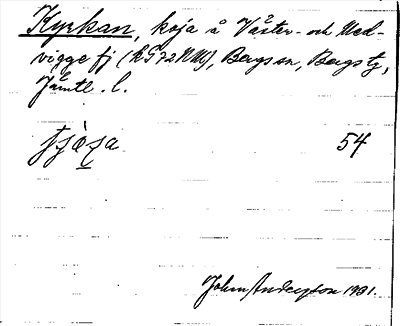 Kyrkan, koja å Väster- och Med-
vigge fj (RS72NM), Bergs sn, Bergs tg,
Jämtl. l.
54
John Anderson 1931.